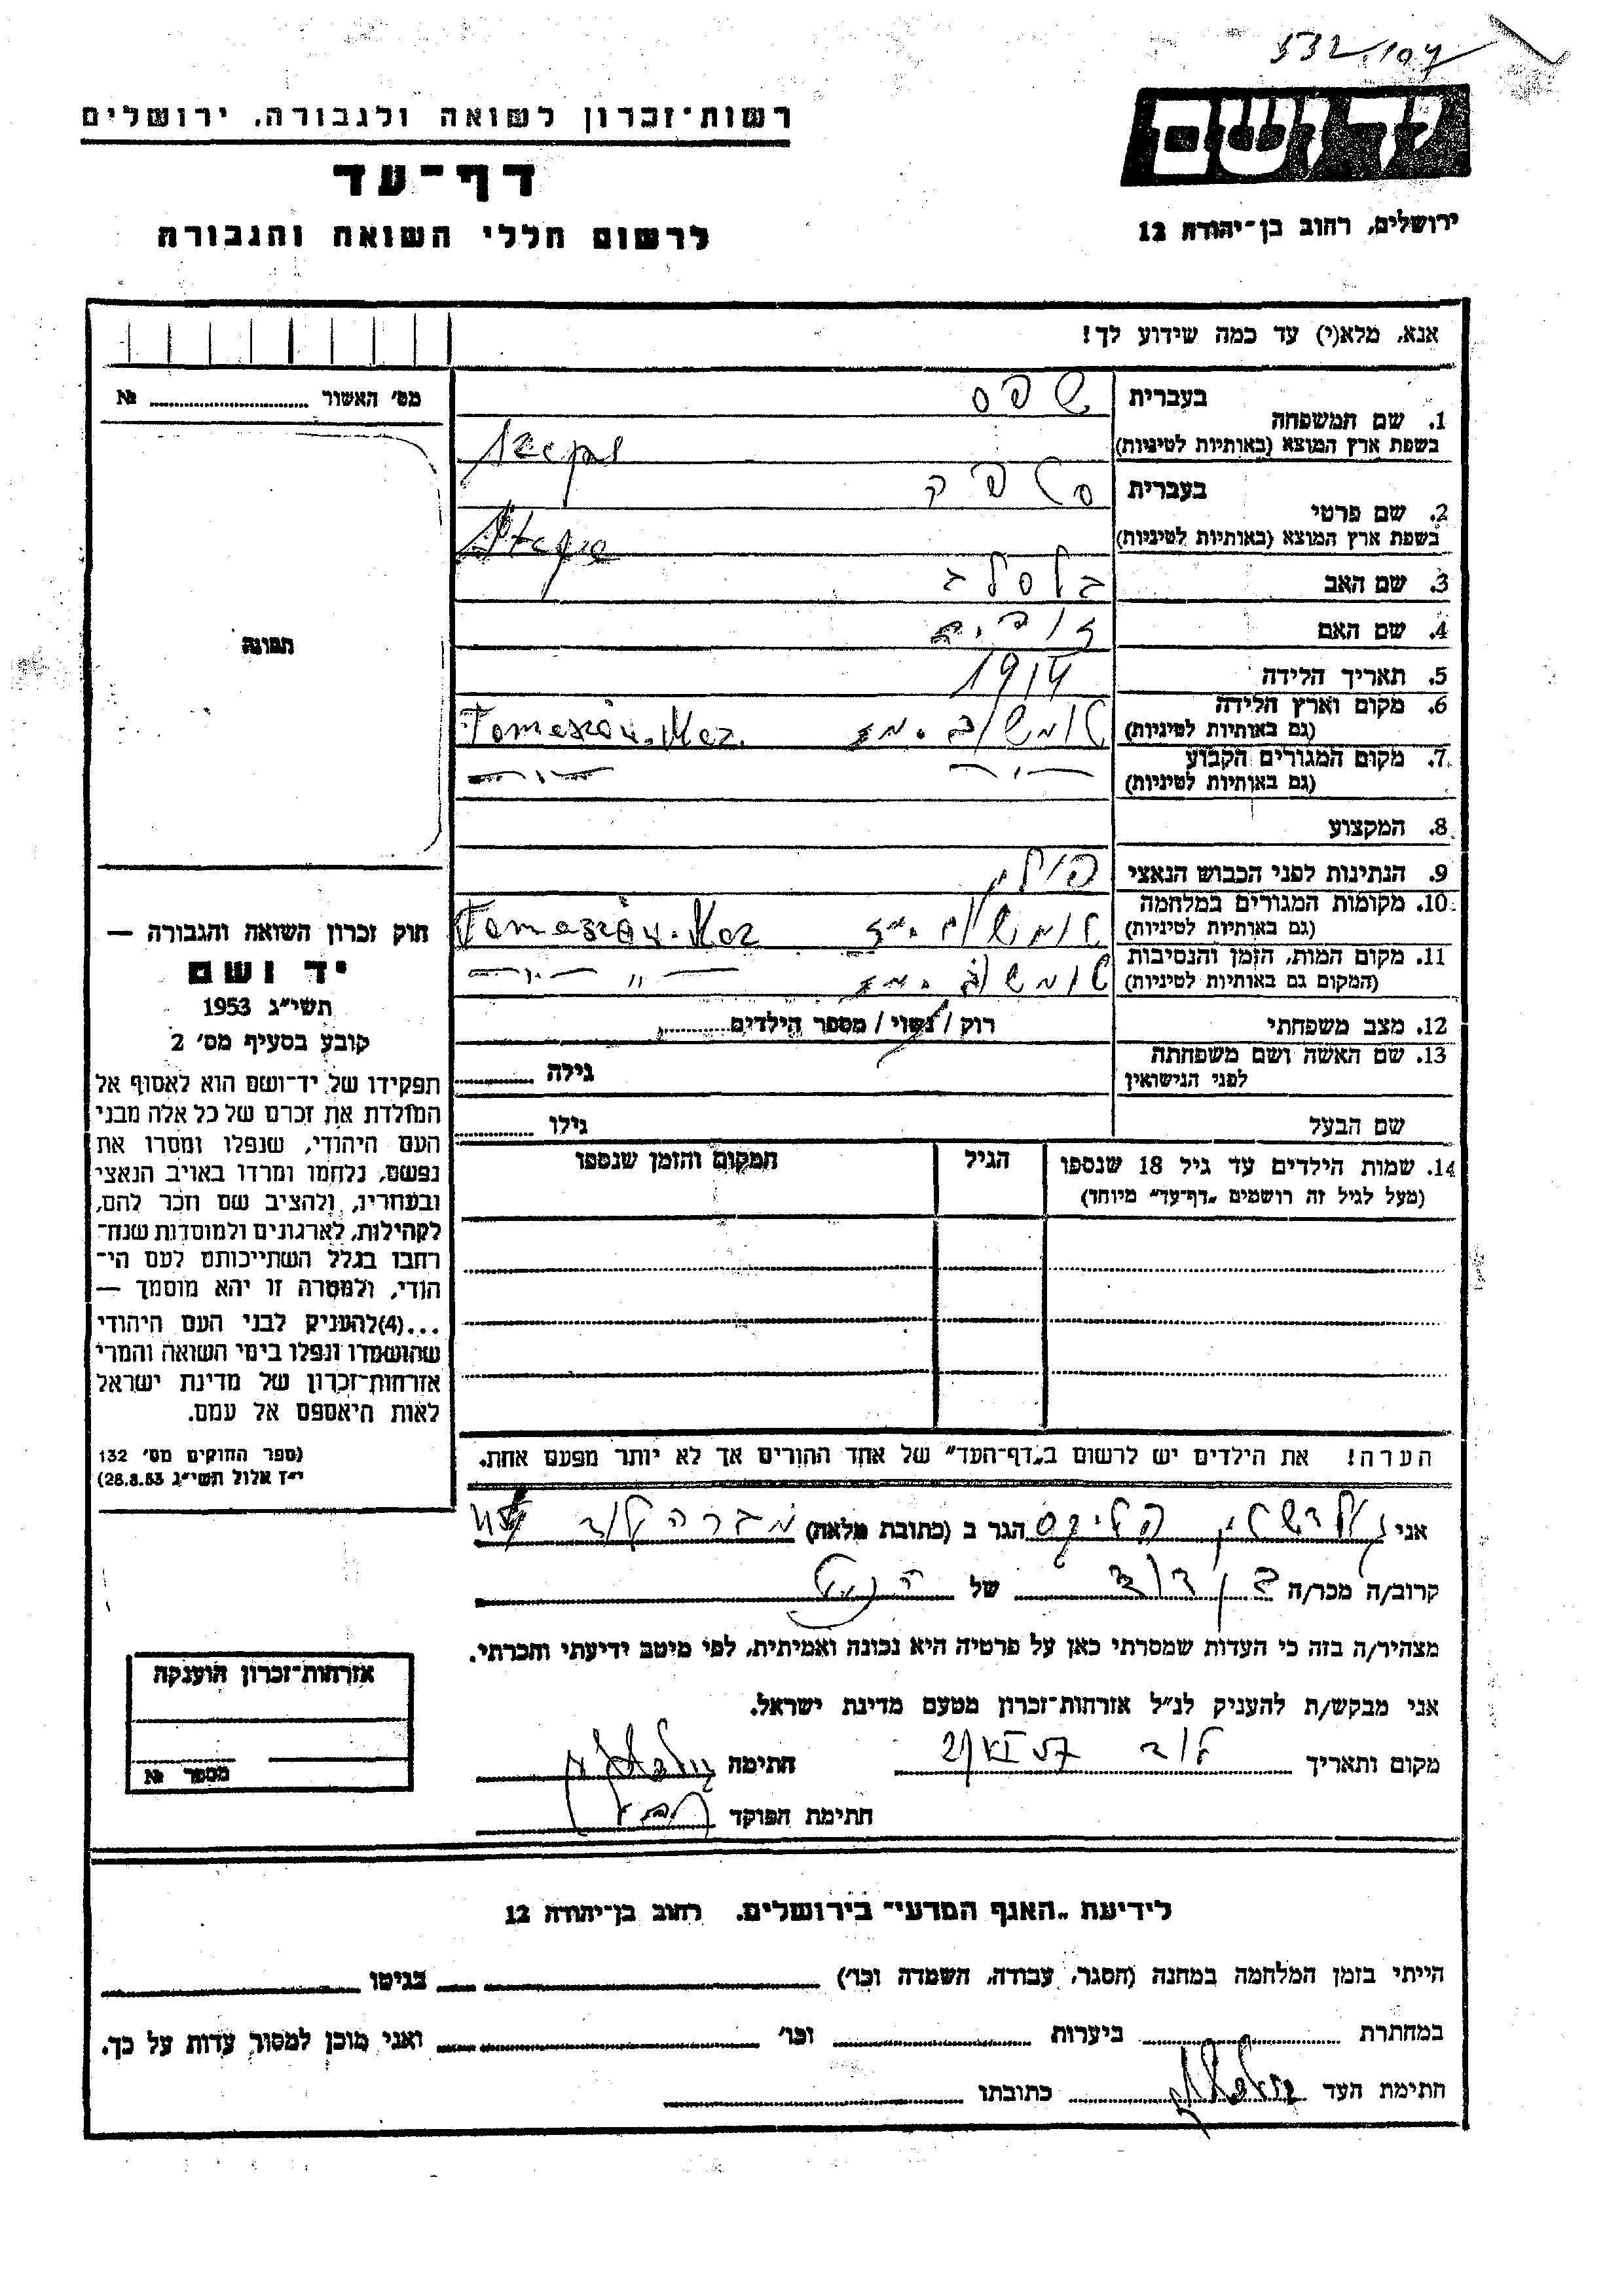 532/107
ידושם
רשות־זכרון לשואה ולגבורה, ירושלים
דף־עד
לרשום חללי השואה והגבורה
ירושלים, רחוב בן־יהודה 12
אנא, מלא(י) עד כמה שידוע לך!
מס׳ האשור № 
תמונה
חוק זכרון השואה והגבורה —
יד ושם
תשי״ג 1953
קובע בסעיף מס׳ 2
תפקידו של יד־ושם הוא לאסוף אל
המולדת את זכרם של כל אלה מבני
העם היהודי, שנפלו ומסרו את
נפשם, נלחמו ומרדו באויב הנאצי
ובעוזריו, ולהציב שם וזכר להם,
לקהילות, לארגונים ולמוסדות שנח־
רבו בגלל השתייכותם לעם הי־
הודי, ולמטרה זו יהא מוסמך —
...(4)להעניק לבני העם היהודי
שהושמדו ונפלו בימי השואה והמרי
אזרחות־זכרון של מדינת ישראל
לאות היאספם אל עמם.
(ספר החוקים מס׳ 132
י״ז אלול תשי״ג 28.8.53)
1. שם המשפחה בעברית שפס
בשפת ארץ המוצא (באותיות לטיניות) Szeps
2. שם פרטי בעברית סלפק
בשפת ארץ המוצא (באותיות לטיניות)
3. שם האב
4. שם האם
5. תאריך הלידה 1914
6. מקום וארץ הלידה (גם באותיות לטיניות) טומשוב. מז Tomaszów. Maz.
7. מקום המגורים הקבוע (גם באותיות לטיניות) — ״ — — ״ —
8. המקצוע
9. הנתינות לפני הכבוש הנאצי פולין
10. מקומות המגורים במלחמה (גם באותיות לטיניות) טומשוב. מז Tomaszów. Maz
11. מקום המות, הזמן והנסיבות (המקום גם באותיות לטיניות) טומשוב. מז — ״ —
12. מצב משפחתי רוק / נשוי / מספר הילדים
13. שם האשה ושם משפחתה לפני הנישואין גילה
שם הבעל גילו
14. שמות הילדים עד גיל 18 שנספו הגיל המקום והזמן שנספו
(מעל לגיל זה רושמים „דף־עד״ מיוחד)
הערה! את הילדים יש לרשום ב„דף־העד״ של אחד ההורים אך לא יותר מפעם אחת.
אני גולדשטין פליקס הגר ב (כתובת מלאה) מברה לוד
קרוב/ה מכר/ה בן דוד של
מצהיר/ה בזה כי העדות שמסרתי כאן על פרטיה היא נכונה ואמיתית, לפי מיטב ידיעתי והכרתי.
אני מבקש/ת להעניק לנ״ל אזרחות־זכרון מטעם מדינת ישראל.
מקום ותאריך לוד 2/VI 57 חתימה
חתימת הפוקד
אזרחות־זכרון הוענקה
מספר №
לידיעת „האגף המדעי״ בירושלים. רחוב בן־יהודה 12
הייתי בזמן המלחמה במחנה (הסגר, עבודה, השמדה וכו׳) בגיטו
במחתרת ביערות וכו׳ ואני מוכן למסור עדות על כך.
חתימת העד כתובתו